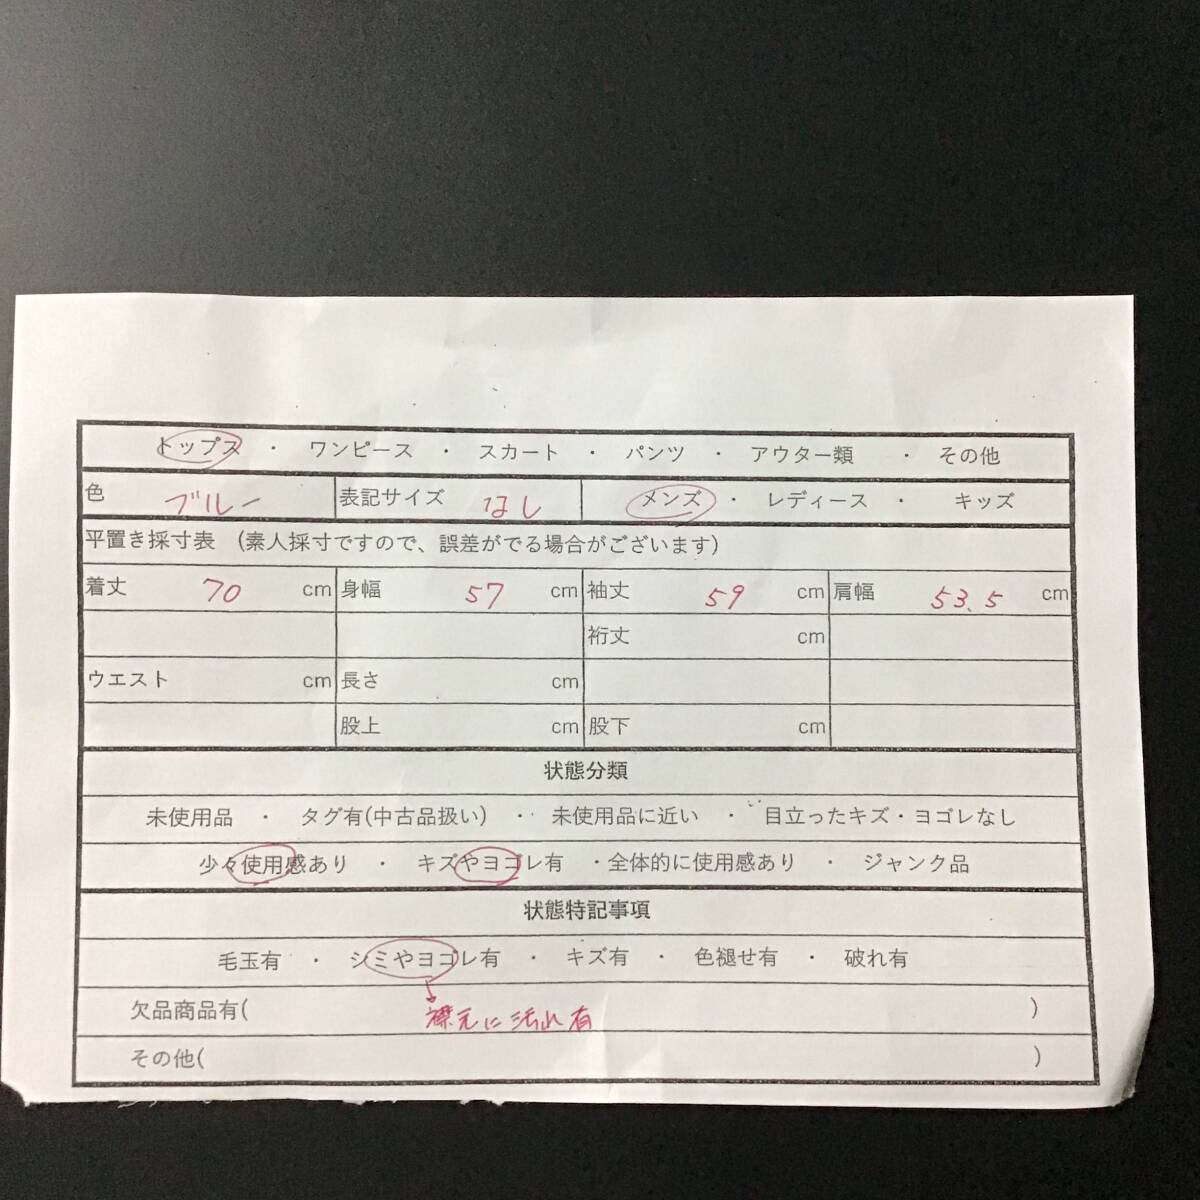 トップス ・ ワンピース ・ スカート ・ パンツ ・ アウター類 ・ その他
色 ブルー 表記サイズ なし メンズ ・ レディース ・ キッズ
平置き採寸表 (素人採寸ですので、誤差がでる場合がございます)
着丈 70 cm 身幅 57 cm 袖丈 59 cm 肩幅 53.5 cm
裄丈 cm
ウエスト cm 長さ cm
股上 cm 股下 cm
状態分類
未使用品 ・ タグ有(中古品扱い) ・ 未使用品に近い ・ 目立ったキズ・ヨゴレなし
少々使用感あり ・ キズやヨゴレ有 ・全体的に使用感あり ・ ジャンク品
状態特記事項
毛玉有 ・ シミやヨゴレ有 ・ キズ有 ・ 色褪せ有 ・ 破れ有
欠品商品有( )
襟元に汚れ有
その他( )